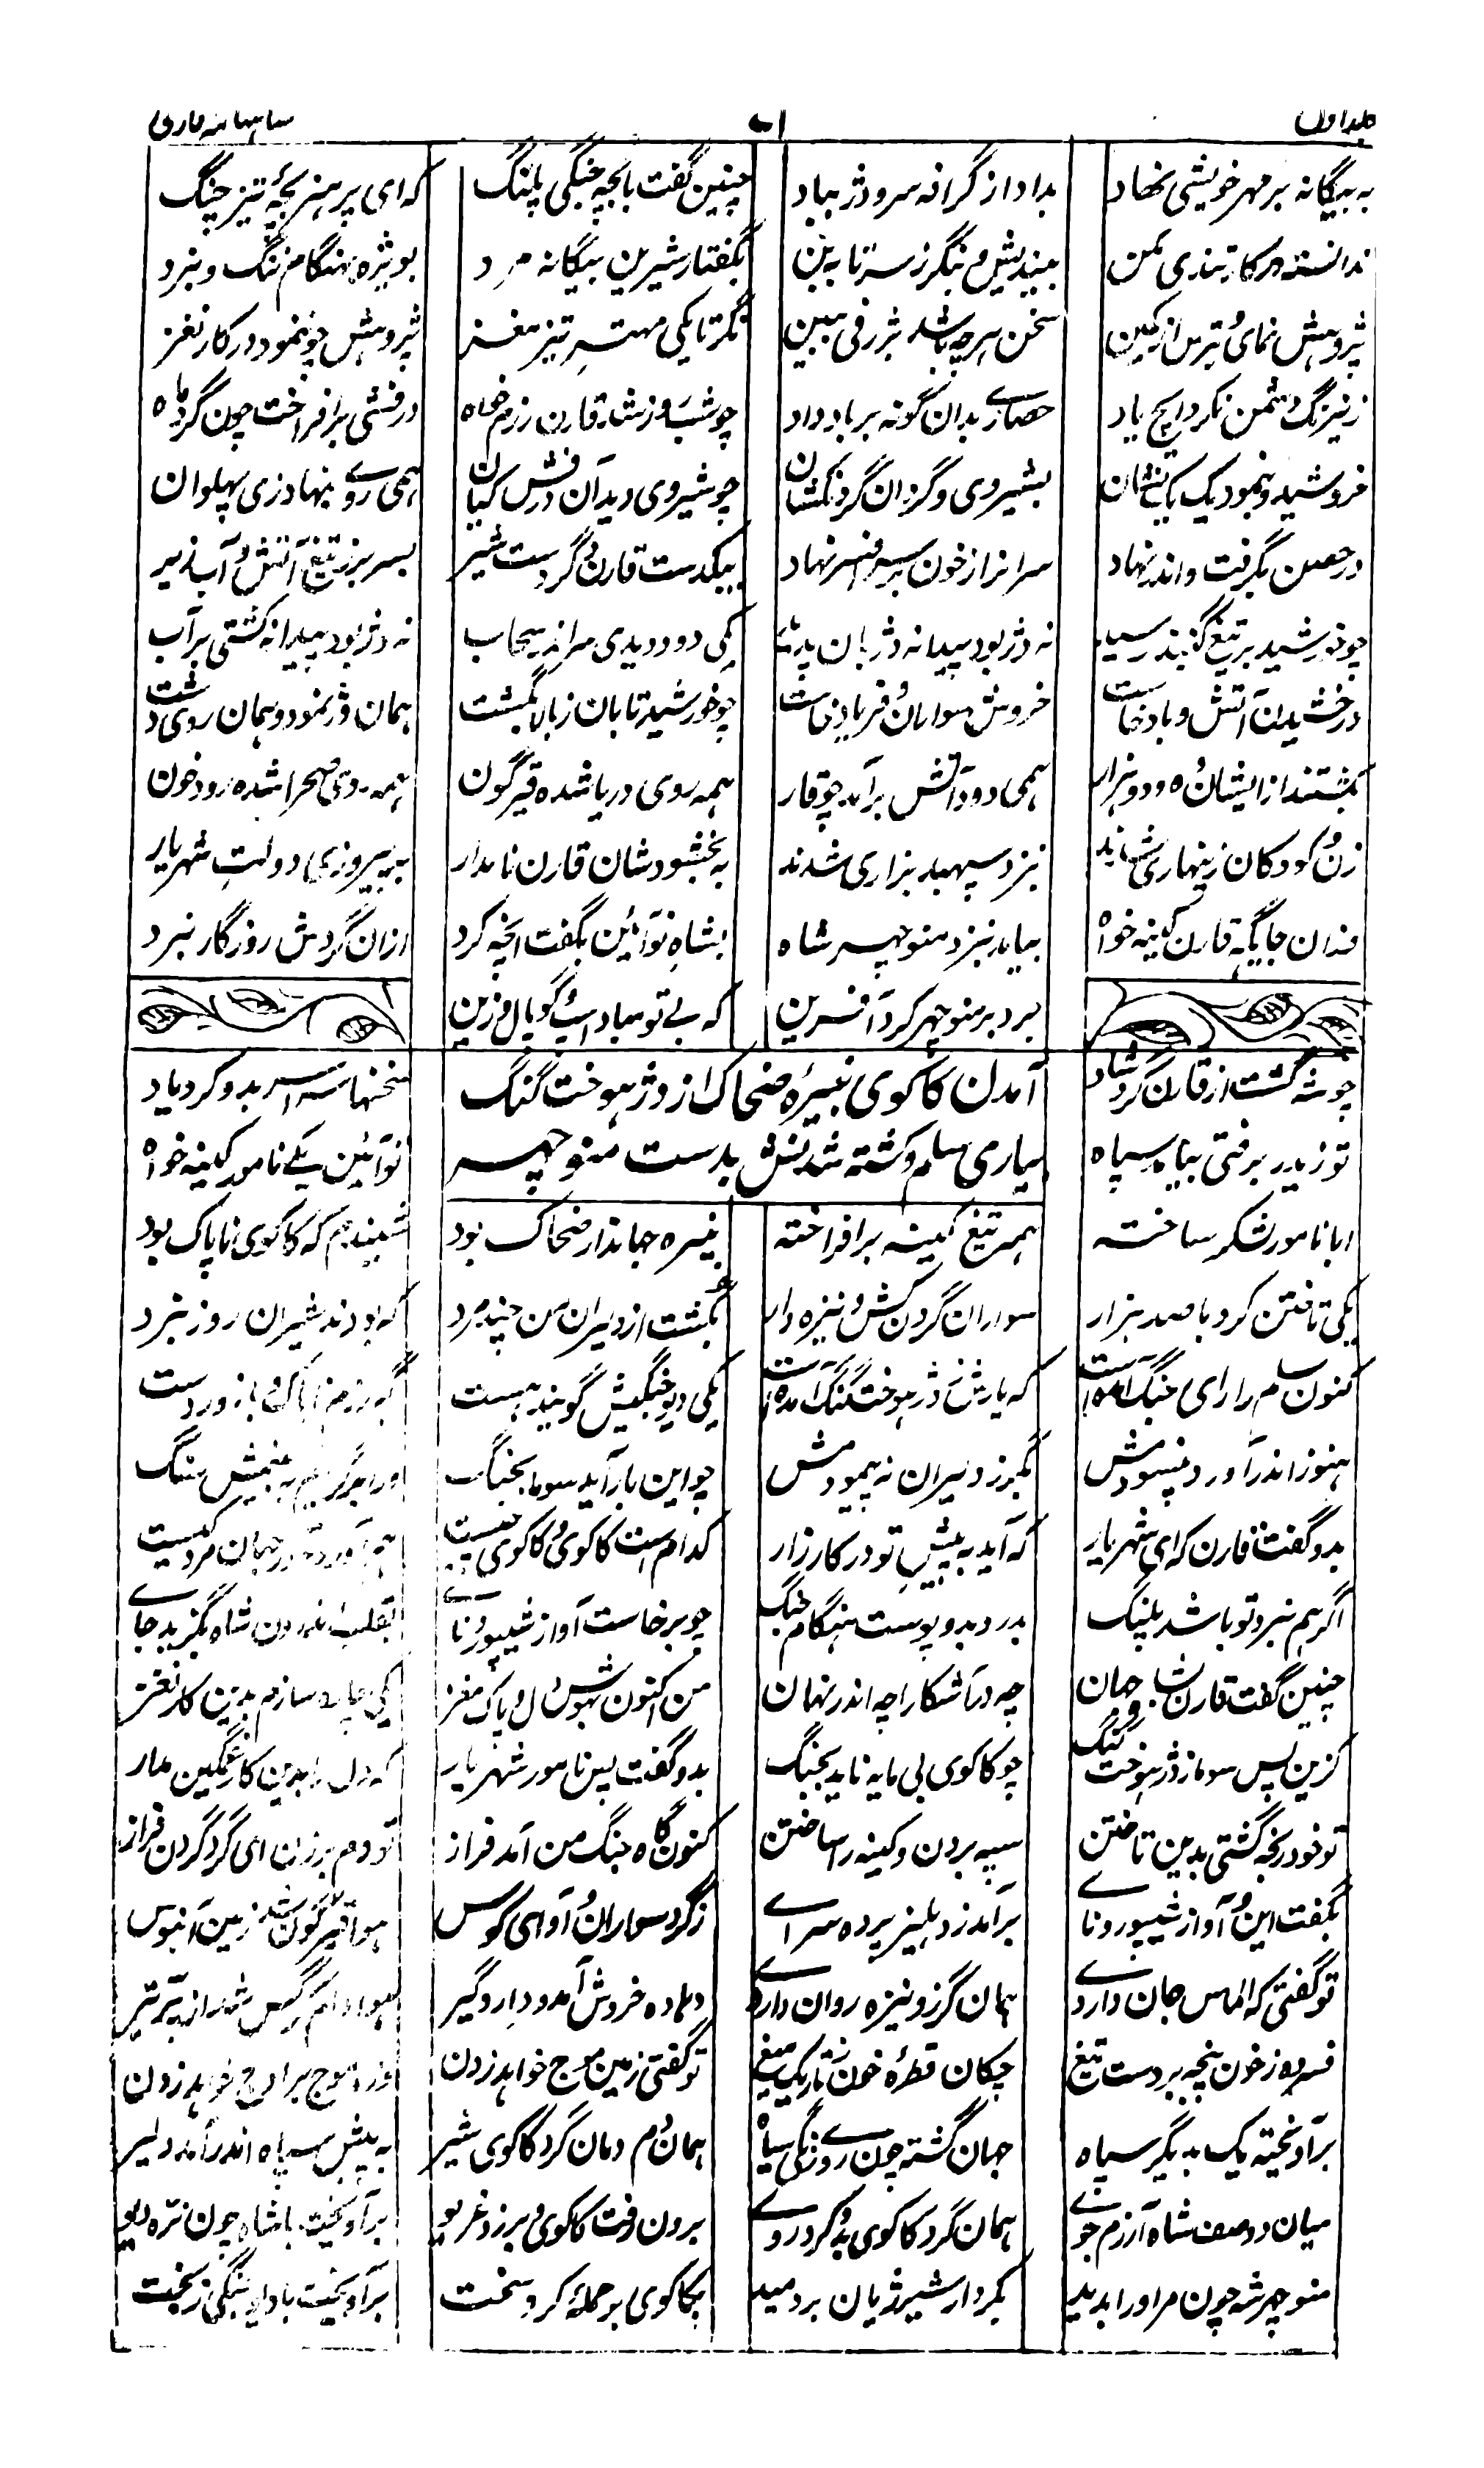 جلد اول ۷۱ شاهنامه فارسی
به بیگانه بر مهر خویشی نهاد بداد از گرانه سر و دژ بباد چنین گفت با بچه جنگی پلنگ که ای پر هنر بچهٔ تیز چنگ
ندانسته در کار تندی مکن بیندیش و بنگر ز سر تا به بن بگفتار شیرین بیگانه مرد بویژه بهنگام ننگ و نبرد
پژوهش نمای و بترس از کمین سخن هر چه باشد بژرفی ببین نگر تا یکی مهتر تیز مغز پژوهش چو ننمود در کار نغز
ز نیرنگ دشمن نکرد ایچ یاد حصاری بدان گونه بر باد داد چو شب روز شد قارن رزم خواه درفشی برافراخت چون گرد ماه
خروشید و بنمود یک یک نشان بشیروی و گردان گردنکشان چو شیروی دید آن درفش کیان همی روی بنهاد زی پهلوان
در حصن بگرفت و اندر نهاد سرانرا ز خون بر سر افسر نهاد بیکدست قارن گرد و یکدست شیر بسر بر ز تیغ آتش و آب زیر
چو خورشید بر تیغ گنبد رسید نه دژ بود پیدا نه دژبان پدید یکی دود دیدی سر اندر سحاب نه دژ بود پیدا نه کشتی بر آب
درخشیدن آتش و باد خاست خروش سواران و فریاد خاست چو خورشید تابان ز بالا بگشت همان دژ نمود و همان روی دشت
بکشتند از ایشان ده و دو هزار همی دود آتش برآمد چو قار همه روی دریا شده قیرگون همه روی صحرا شده رود خون
زن و کودکان زینهاری شدند بنزد سپهبد بزاری شدند به بخشودشان قارن نامدار به پیروزی دولت شهریار
از آن جایگه قارن کینه خواه بیامد بنزد منوچهر شاه بشاه نو آئین بگفت آنچه کرد ازان گردش روزگار نبرد
برو بر منوچهر کرد آفرین که بی تو مباد اسپ و گوپال و زین
آمدن کاکوی نبیرهٔ ضحاک از دژ هوخت گنگ
بیاری سلم و کشته شدنش بدست منوچهر
چو شه گشت از قارن گرد شاد سخنها سراسر بدو کرد یاد
تو زیدر برفتی بیامد سپاه نوآئین یکی نامور کینه خواه
ابا نامور لشکر ساخته همه تیغ کینه برافراخته نبیره جهاندار ضحاک بود شنیدم که کاکوی ناپاک بود
یکی تاختن کرد با صد هزار سواران گردن کش و نیزه دار بکشت از دلیران من چند مرد که بودند شیران روز نبرد
کنون سلم را رای جنگ آمده است که یارش ز دژ هوخت گنگ آمده است یکی دیو جنگیش گویند هست گه رزم ناباک با زور دست
هنوز اندر آورد نبسودمش بگرز دلیران نه پیمودمش چو این بار آید سوی ما بجنگ ورا برگرایم به بینمش سنگ
بدو گفت قارن که ای شهریار که آید به پیش تو در کارزار کدام است کاکوی و کاکوی چیست هم آورد تو در جهان مرد کیست
اگر هم نبرد تو باشد پلنگ بدرد بدو پوست هنگام جنگ چو برخاست آواز شیپور و نای بقلب اندرون شاه بگزید جای
چنین گفت قارن بشاه جهان چه در آشکارا چه اندر نهان من اکنون بهوش دل و پاک مغز یکی چاره سازم بدین کار نغز
کزین پس سوی ما ز دژ هوخت گنگ چو کاکوی بی مایه ناید بجنگ بدو گفت پس نامور شهریار که دل را بدین کار غمگین مدار
تو خود رنجه گشتی بدین تاختن سپه بردن و کینه را ساختن کنون گاه جنگ من آمد فراز تو دم برزن ای گرد گردن فراز
بگفت این و آواز شیپور و نای برآمد ز دهلیز پرده سرای ز گرد سواران و آوای کوس هوا قیرگون شد زمین آبنوس
تو گفتی که الماس جان داردی همان گرز و نیزه روان داردی دهاده خروش آمد و دار و گیر هوا دام کرگس شد از پر تیر
فسرده ز خون پنجه بر دست تیغ چکان قطرهٔ خون ز تاریک میغ تو گفتی زمین موج خواهد زدن وز و موج بر اوج خواهد زدن
برآویخته یک بدیگر سپاه جهان گشته چون روی زنگی سیاه همان دم دمان گرد کاکوی شیر به پیش سپاه اندر آمد دلیر
میان دو صف شاه آرزم جوی همان گرد کاکوی بدو کرد روی برون رفت کاکوی و برزد غریو برآویخت با شاه چون نره دیو
منوچهر شه چون مر او را بدید بکردار شیر ژیان بردمید بکاکوی بر حملهٔ کرد سخت برآویخت با دیو جنگی ز بخت